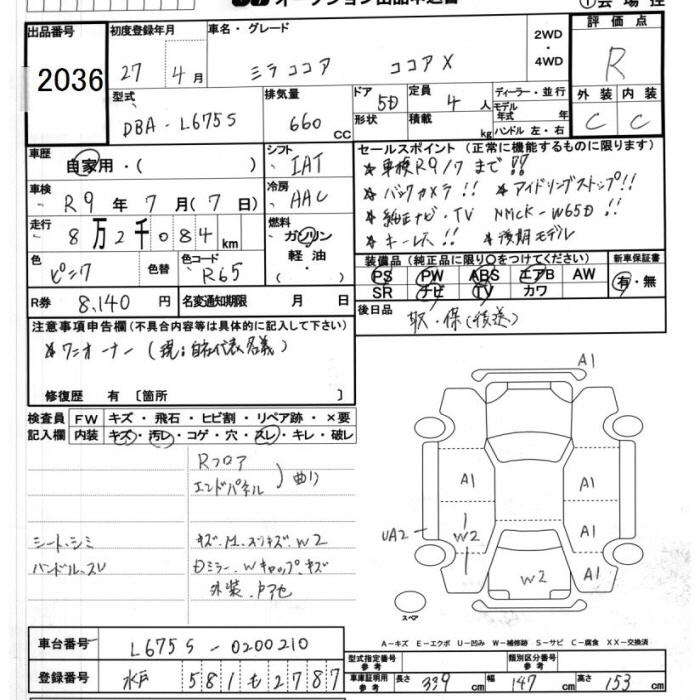 オークション出品申込書
①会場控
出品番号 2036
初度登録年月 27年 4月
車名・グレード ミラココア ココアX
2WD・4WD
評価点 R
外装 C 内装 C
型式 DBA-L675S
排気量 660 CC
ドア形状 5D
定員 4人
積載 kg
ディーラー・並行
モデル年式 年
ハンドル 左・右
車歴 自家用・( )
シフト IAT
車検 R9年 7月(7日)
冷房 AAC
走行 8万2千084km
燃料 ガソリン 軽油・( )
色 ピンク 色替
色コード R65
R券 8,140円
名変通知期限 月 日
セールスポイント (正常に機能するものに限ります)
★車検R9/7まで!!
★バックカメラ!! ★アイドリングストップ!!
★純正ナビ・TV NMCK-W65D!!
★キーレス!! ★後期モデル
装備品 (純正品に限り○をつけてください)
新車保証書 有・無
PS PW ABS エアB AW
SR ナビ TV カワ
後日品 取・保(積送)
注意事項申告欄(不具合内容等は具体的に記入して下さい)
★ワンオーナー(現:自社代表名義)
修復歴 有 〔箇所 〕
検査員記入欄
FW キズ・飛石・ヒビ割・リペア跡・×要
内装 キズ・汚レ・コゲ・穴・スレ・キレ・破レ
Rフロア
エンドパネル )曲リ
シート、シミ
ハンドル、スレ
キズ、W2
Dミラー、Wキャップ、キズ
A1
A1 A1 A1
UA2 W2 A1
W2 A1
スペア
A-キズ E-エクボ U-凹み W-補修跡 S-サビ C-腐食 XX-交換済
車台番号 L675S-0200210
登録番号 水戸 581 も 2787
型式指定番号 参考
類別区分番号 参考
車庫証明用 参考 長さ 339cm 幅 147cm 高さ 153cm